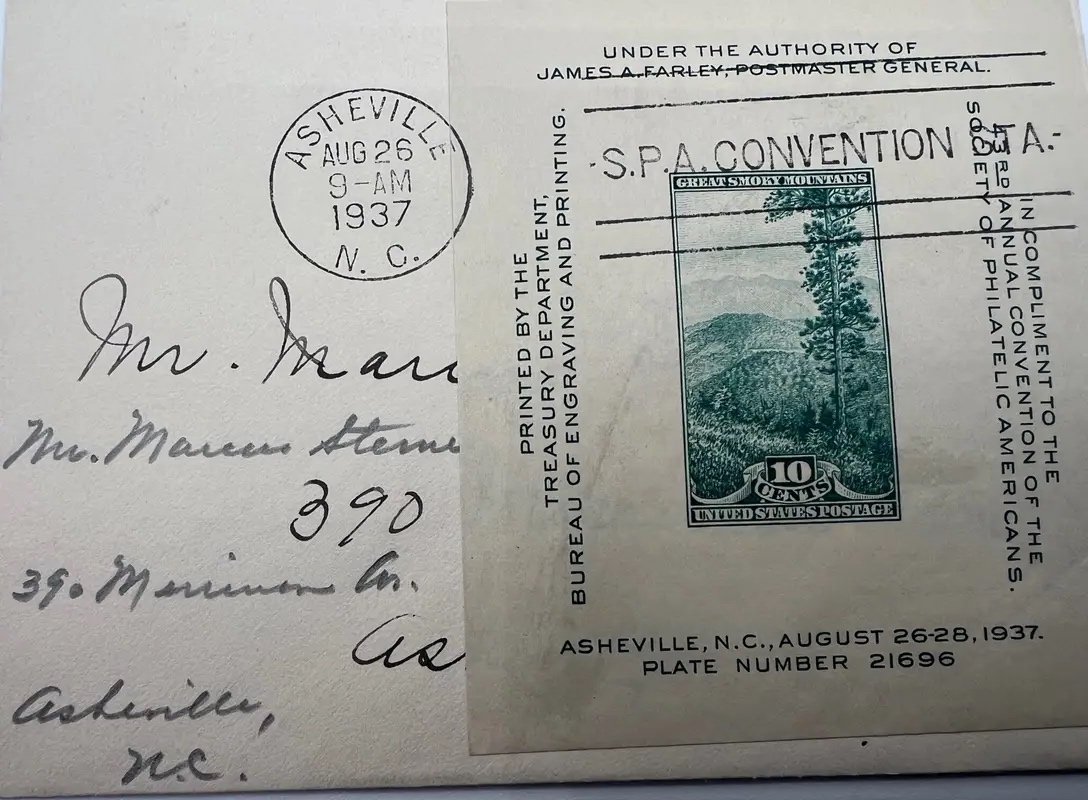 ASHEVILLE
AUG 26
9-AM
1937
N. C.
Mr. Marc
Mr. Marcus Sterne
390
390 Merrimon Av.
As
Asheville,
N.C.
UNDER THE AUTHORITY OF
JAMES A. FARLEY, POSTMASTER GENERAL.
PRINTED BY THE
TREASURY DEPARTMENT,
BUREAU OF ENGRAVING AND PRINTING.
S.P.A. CONVENTION STA.
GREAT SMOKY MOUNTAINS
10
CENTS
UNITED STATES POSTAGE
IN COMPLIMENT TO THE
43RD ANNUAL CONVENTION OF THE
SOCIETY OF PHILATELIC AMERICANS.
ASHEVILLE, N.C., AUGUST 26-28, 1937.
PLATE NUMBER 21696